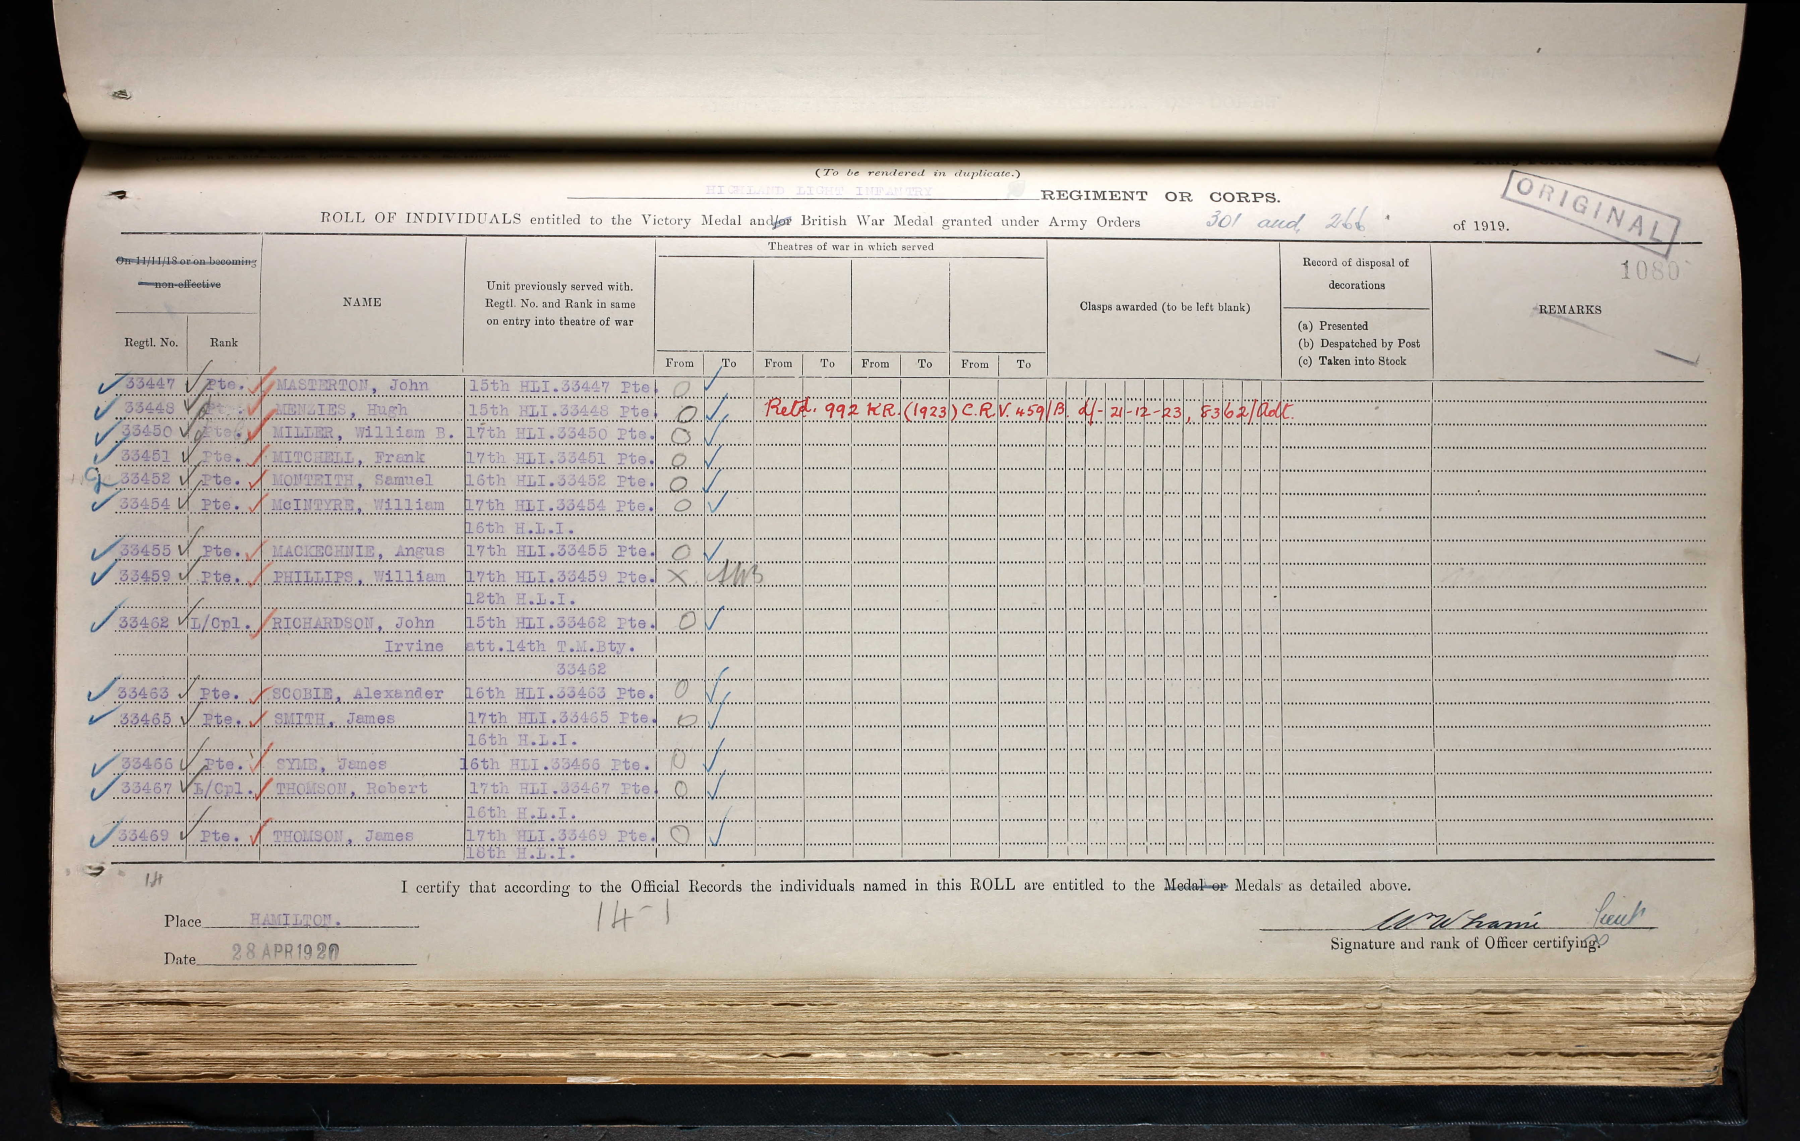 (To be rendered in duplicate.)
HIGHLAND LIGHT INFANTRY REGIMENT OR CORPS.
ORIGINAL
ROLL OF INDIVIDUALS entitled to the Victory Medal and/or British War Medal granted under Army Orders 301 and 266 of 1919.
1080
On 11/11/18 or on becoming non-effective
Regtl. No. Rank
NAME
Unit previously served with. Regtl. No. and Rank in same on entry into theatre of war
Theatres of war in which served
From To From To From To From To
Clasps awarded (to be left blank)
Record of disposal of decorations
(a) Presented
(b) Despatched by Post
(c) Taken into Stock
REMARKS
33447 Pte. MASTERTON, John 15th HLI.33447 Pte.
33448 Pt. MENZIES, Hugh 15th HLI.33448 Pte. Retd. 992 KR.(1923) C.R.V. 459/B. d/- 21-12-23, 8362/Adt.
33450 Pte. MILLER, William B. 17th HLI.33450 Pte.
33451 Pte. MITCHELL, Frank 17th HLI.33451 Pte.
33452 Pte. MONTEITH, Samuel 16th HLI.33452 Pte.
33454 Pte. McINTYRE, William 17th HLI.33454 Pte.
16th H.L.I.
33455 Pte. MACKECHNIE, Angus 17th HLI.33455 Pte.
33459 Pte. PHILLIPS, William 17th HLI.33459 Pte. X
12th H.L.I.
33462 L/Cpl. RICHARDSON, John 15th HLI.33462 Pte.
Irvine att.14th T.M.Bty.
33462
33463 Pte. SCOBIE, Alexander 16th HLI.33463 Pte.
33465 Pte. SMITH, James 17th HLI.33465 Pte.
16th H.L.I.
33466 Pte. SYME, James 16th HLI.33466 Pte.
33467 L/Cpl. THOMSON, Robert 17th HLI.33467 Pte.
16th H.L.I.
33469 Pte. THOMSON, James 17th HLI.33469 Pte.
18th H.L.I.
14
I certify that according to the Official Records the individuals named in this ROLL are entitled to the Medal or Medals as detailed above.
14-1
Place HAMILTON.
Lieut
Signature and rank of Officer certifying.
Date 28 APR 1920